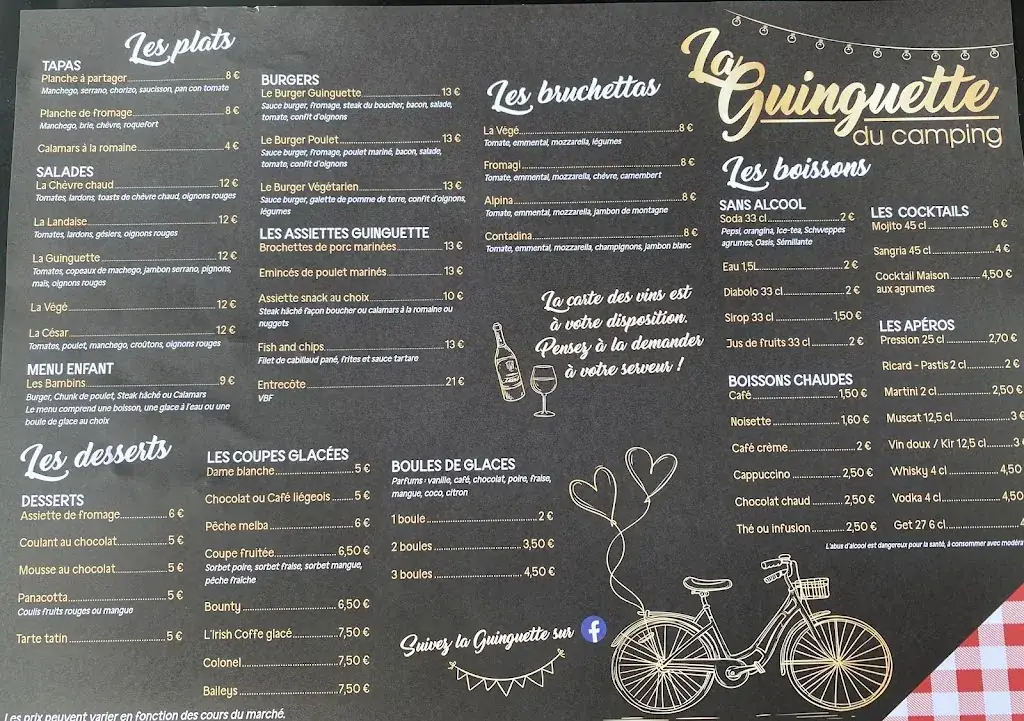 Les plats
TAPAS
Planche à partager 8 €
Manchego, serrano, chorizo, saucisson, pan con tomate
Planche de fromage 8 €
Manchego, brie, chèvre, roquefort
Calamars à la romaine 4 €
SALADES
La Chèvre chaud 12 €
Tomates, lardons, toasts de chèvre chaud, oignons rouges
La Landaise 12 €
Tomates, lardons, gésiers, oignons rouges
La Guinguette 12 €
Tomates, copeaux de machego, jambon serrano, pignons,
maïs, oignons rouges
La Végé 12 €
La César 12 €
Tomates, poulet, manchego, croûtons, oignons rouges
MENU ENFANT
Les Bambins 9 €
Burger, Chunk de poulet, Steak hâché ou Calamars
Le menu comprend une boisson, une glace à l'eau ou une
boule de glace au choix
BURGERS
Le Burger Guinguette 13 €
Sauce burger, fromage, steak du boucher, bacon, salade,
tomate, confit d'oignons
Le Burger Poulet 13 €
Sauce burger, fromage, poulet mariné, bacon, salade,
tomate, confit d'oignons
Le Burger Végétarien 13 €
Sauce burger, galette de pomme de terre, confit d'oignons,
légumes
LES ASSIETTES GUINGUETTE
Brochettes de porc marinées 13 €
Emincés de poulet marinés 13 €
Assiette snack au choix 10 €
Steak hâché façon boucher ou calamars à la romaine ou
nuggets
Fish and chips 13 €
Filet de cabillaud pané, frites et sauce tartare
Entrecôte 21 €
VBF
Les bruchettas
La Végé 8 €
Tomate, emmental, mozzarella, légumes
Fromagi 8 €
Tomate, emmental, mozzarella, chèvre, camembert
Alpina 8 €
Tomate, emmental, mozzarella, jambon de montagne
Contadina 8 €
Tomate, emmental, mozzarella, champignons, jambon blanc
La carte des vins est
à votre disposition.
Pensez à la demander
à votre serveur !
La
Guinguette
du camping
Les boissons
SANS ALCOOL
Soda 33 cl 2 €
Pepsi, orangina, Ice-tea, Schweppes
agrumes, Oasis, Sémillante
Eau 1,5L 2 €
Diabolo 33 cl 2 €
Sirop 33 cl 1,50 €
Jus de fruits 33 cl 2 €
BOISSONS CHAUDES
Café 1,50 €
Noisette 1,60 €
Café crème 2 €
Cappuccino 2,50 €
Chocolat chaud 2,50 €
Thé ou infusion 2,50 €
LES COCKTAILS
Mojito 45 cl 6 €
Sangria 45 cl 4 €
Cocktail Maison 4,50 €
aux agrumes
LES APÉROS
Pression 25 cl 2,70 €
Ricard - Pastis 2 cl 2 €
Martini 2 cl 2,50 €
Muscat 12,5 cl 3 €
Vin doux / Kir 12,5 cl 3
Whisky 4 cl 4,50
Vodka 4 cl 4,50
Get 27 6 cl
L'abus d'alcool est dangereux pour la santé, à consommer avec modéra
Les desserts
DESSERTS
Assiette de fromage 6 €
Coulant au chocolat 5 €
Mousse au chocolat 5 €
Panacotta 5 €
Coulis fruits rouges ou mangue
Tarte tatin 5 €
LES COUPES GLACÉES
Dame blanche 5 €
Chocolat ou Café liégeois 5 €
Pêche melba 6 €
Coupe fruitée 6,50 €
Sorbet poire, sorbet fraise, sorbet mangue,
pêche fraîche
Bounty 6,50 €
L'Irish Coffe glacé 7,50 €
Colonel 7,50 €
Baileys 7,50 €
BOULES DE GLACES
Parfums : vanille, café, chocolat, poire, fraise,
mangue, coco, citron
1 boule 2 €
2 boules 3,50 €
3 boules 4,50 €
Suivez la Guinguette sur f
Les prix peuvent varier en fonction des cours du marché.